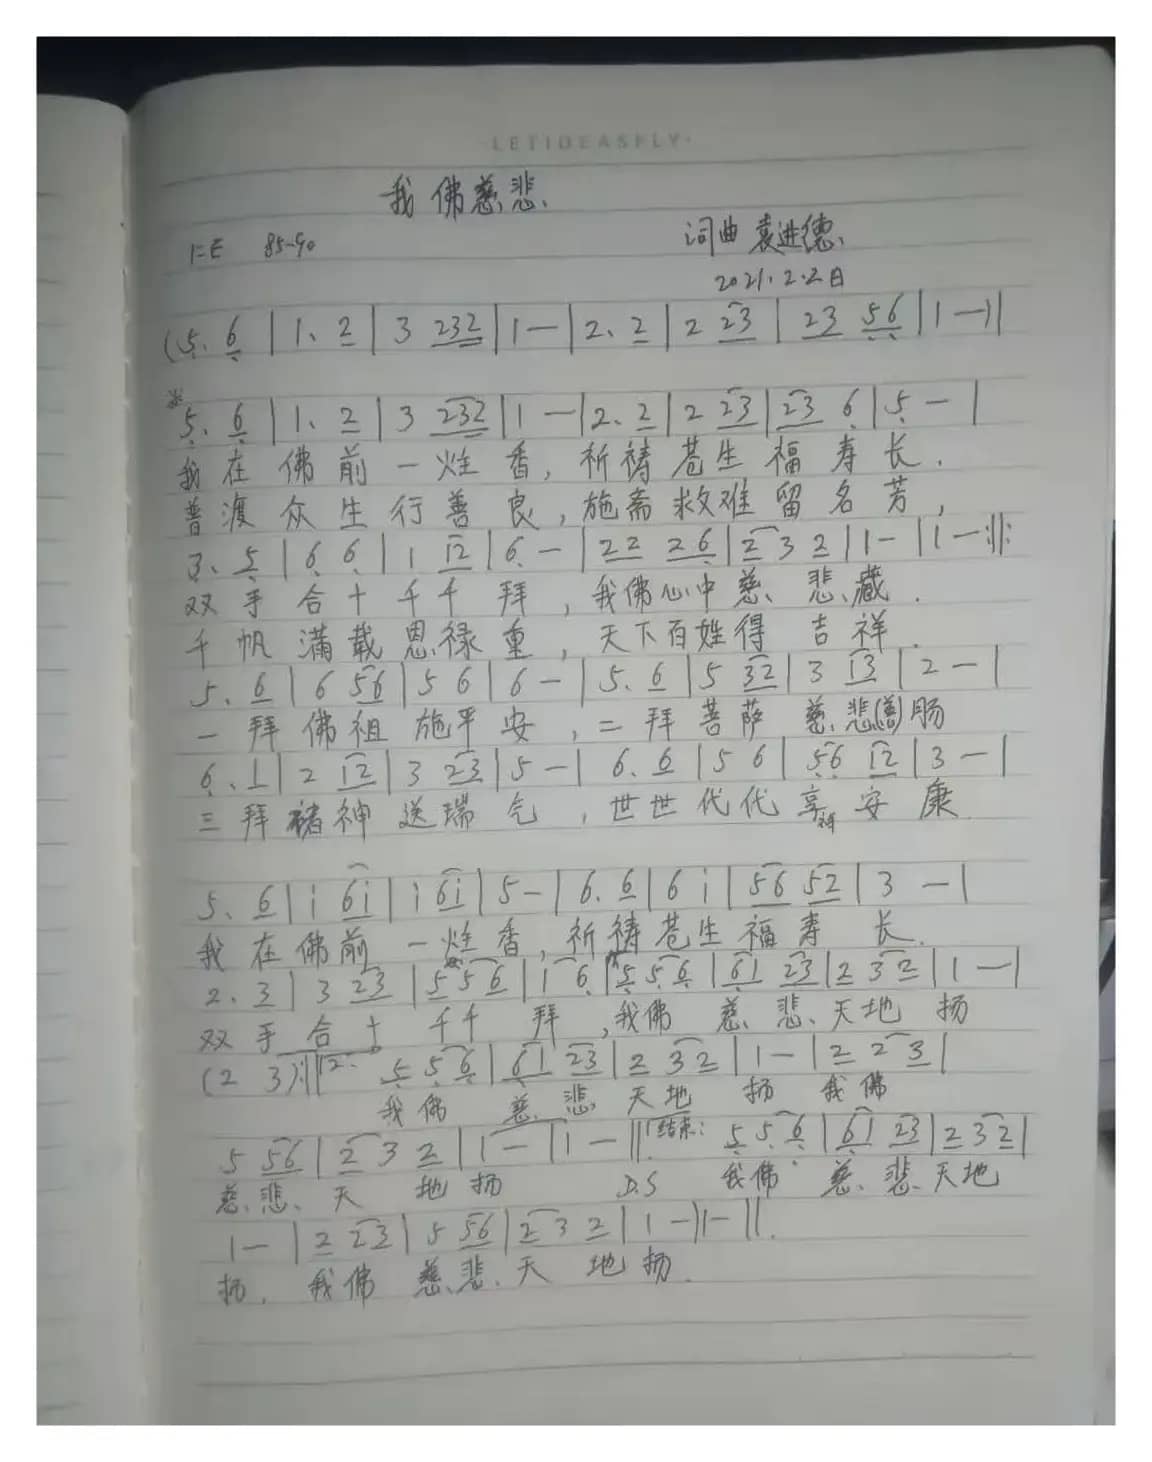 ·LETIDEASFLY·
我佛慈悲
1=E 85-90 词曲 袁进德
2021.2.2日
(5. 6 | 1. 2 | 3 232 | 1 — | 2. 2 | 2 23 | 23 56 | 1 —) |
※
5. 6 | 1. 2 | 3 232 | 1 — | 2. 2 | 2 23 | 23 6 | 5 — |
我在佛前一炷香,祈祷苍生福寿长.
普渡众生行善良,施斋救难留名芳,
3. 5 | 6 6 | 1 12 | 6 — | 22 26 | 2 3 2 | 1 — | 1 — :||:
双手合十千千拜,我佛心中慈悲藏.
千帆满载恩禄重,天下百姓得吉祥.
5. 6 | 6 56 | 5 6 | 6 — | 5. 6 | 5 32 | 3 13 | 2 — |
一拜佛祖施平安,二拜菩萨慈悲(善)肠
6. 1 | 2 12 | 3 23 | 5 — | 6. 6 | 5 6 | 56 12 | 3 — |
三拜诸神送瑞气,世世代代享安康
5. 6 | i 6i | i 6i | 5 — | 6. 6 | 6 i | 56 52 | 3 — |
我在佛前一炷香,祈祷苍生福寿长.
2. 3 | 3 23 | 5 5 6 | 1 6 | 5 5 6 | 61 23 | 2 3 2 | 1 — |
双手合十千千拜,我佛慈悲天地扬
(2 3) :|| 2. 5 5 6 | 61 23 | 2 3 2 | 1 — | 2 2 3 |
我佛慈悲天地扬我佛
5 56 | 2 3 2 | 1 — | 1 — || 结束: 5 5 6 | 61 23 | 2 3 2 |
慈悲天地扬 D.S 我佛慈悲天地
1 — | 2 23 | 5 56 | 2 3 2 | 1 — | 1 — ||
扬.我佛慈悲天地扬.